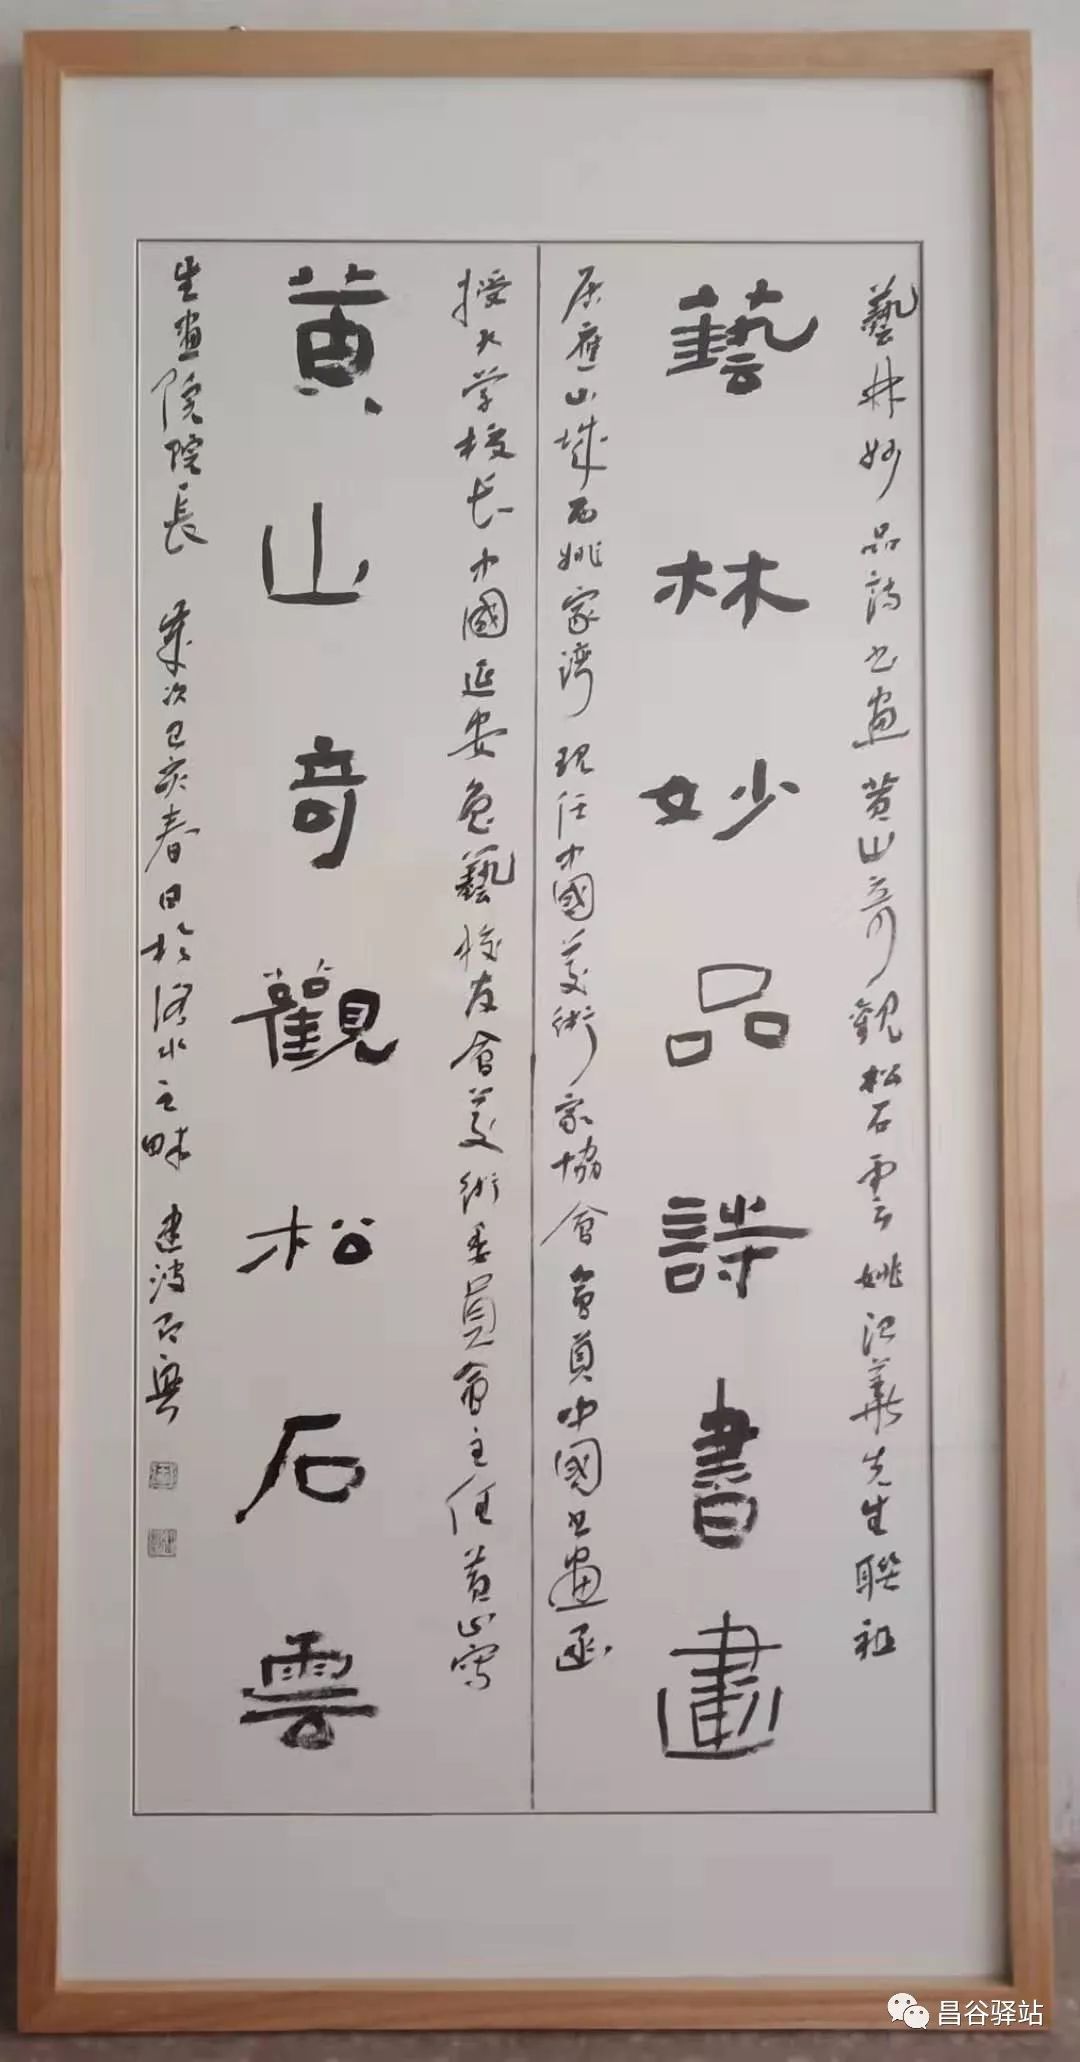 藝林妙品詩書畫黄山奇觀松石雲姚江華先生聯祖
藝林妙品詩書畫
居應山城西姚家湾現任中國美術家協會會員中國書畫函
授大学校長中國延安魯藝校友會美術委員會主任黄山寫
黄山奇觀松石雲
生画院院長 歲次己亥春日於洛水之畔 建波即興
昌谷驿站